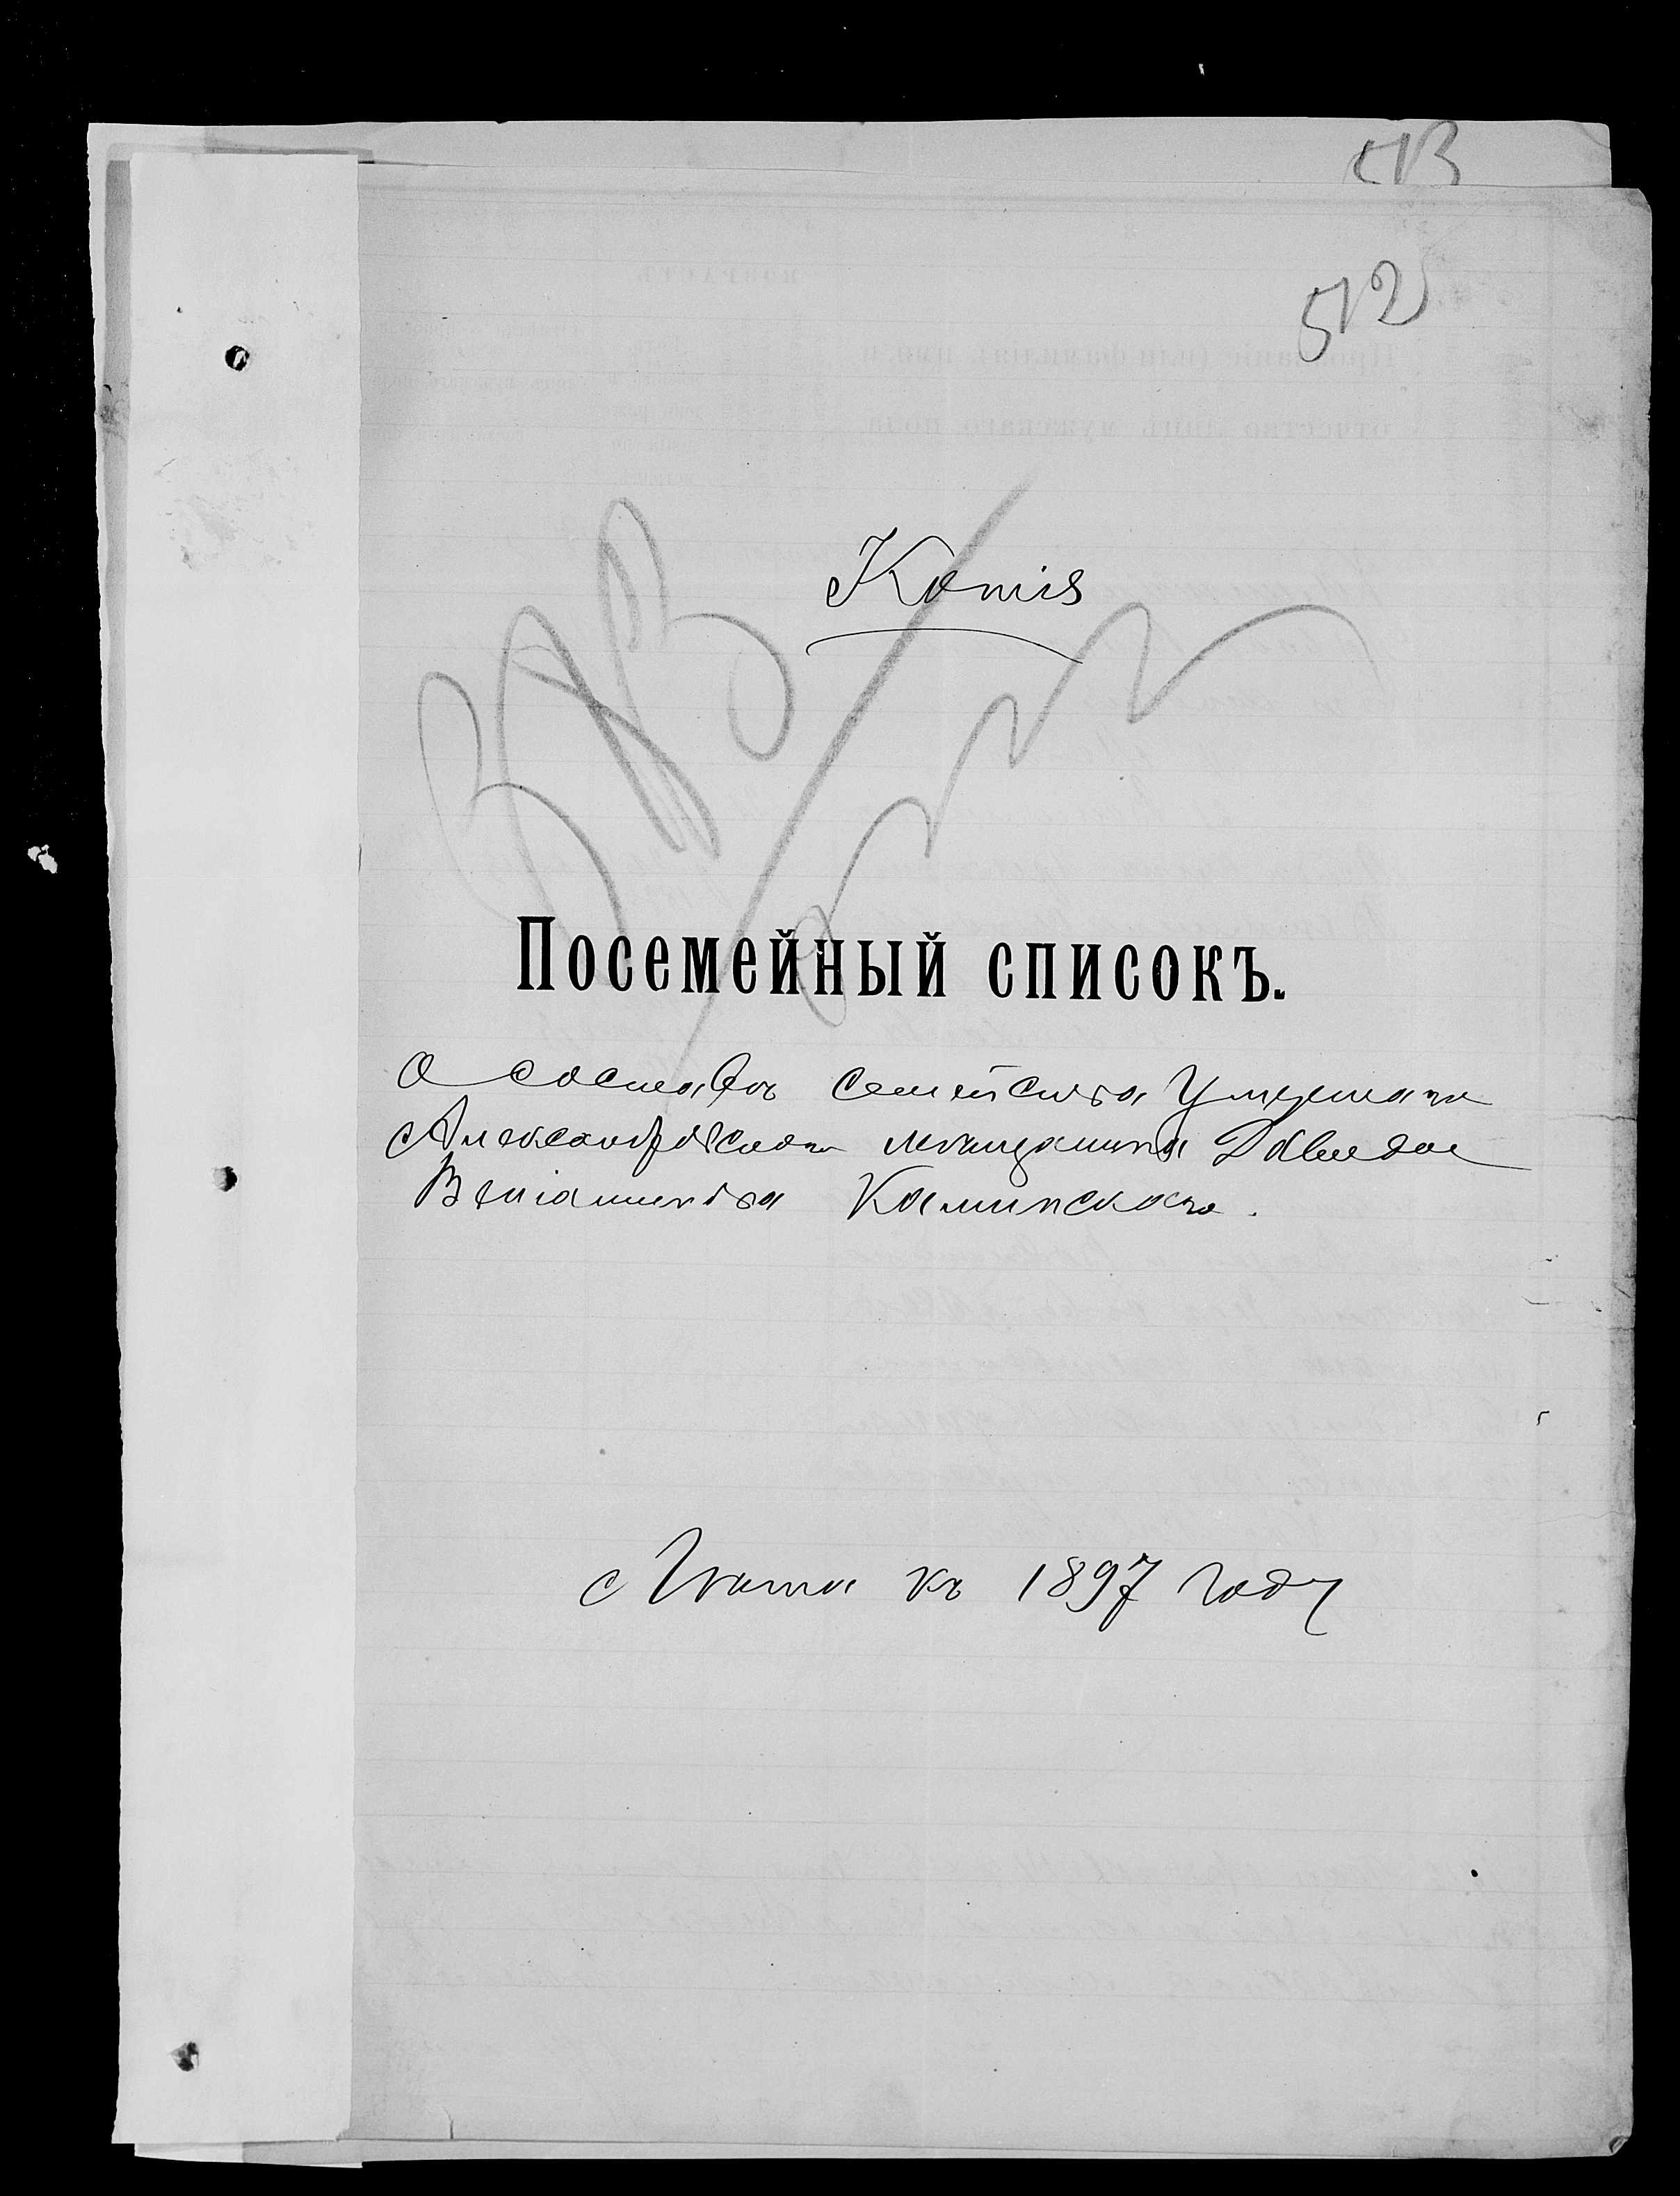 513
512
Копія
Посемейный списокъ.
О составѣ семейства Умершаго
Александровскаго мѣщанина Давида
Веніаминова Каминскаго.
къ 1897 году